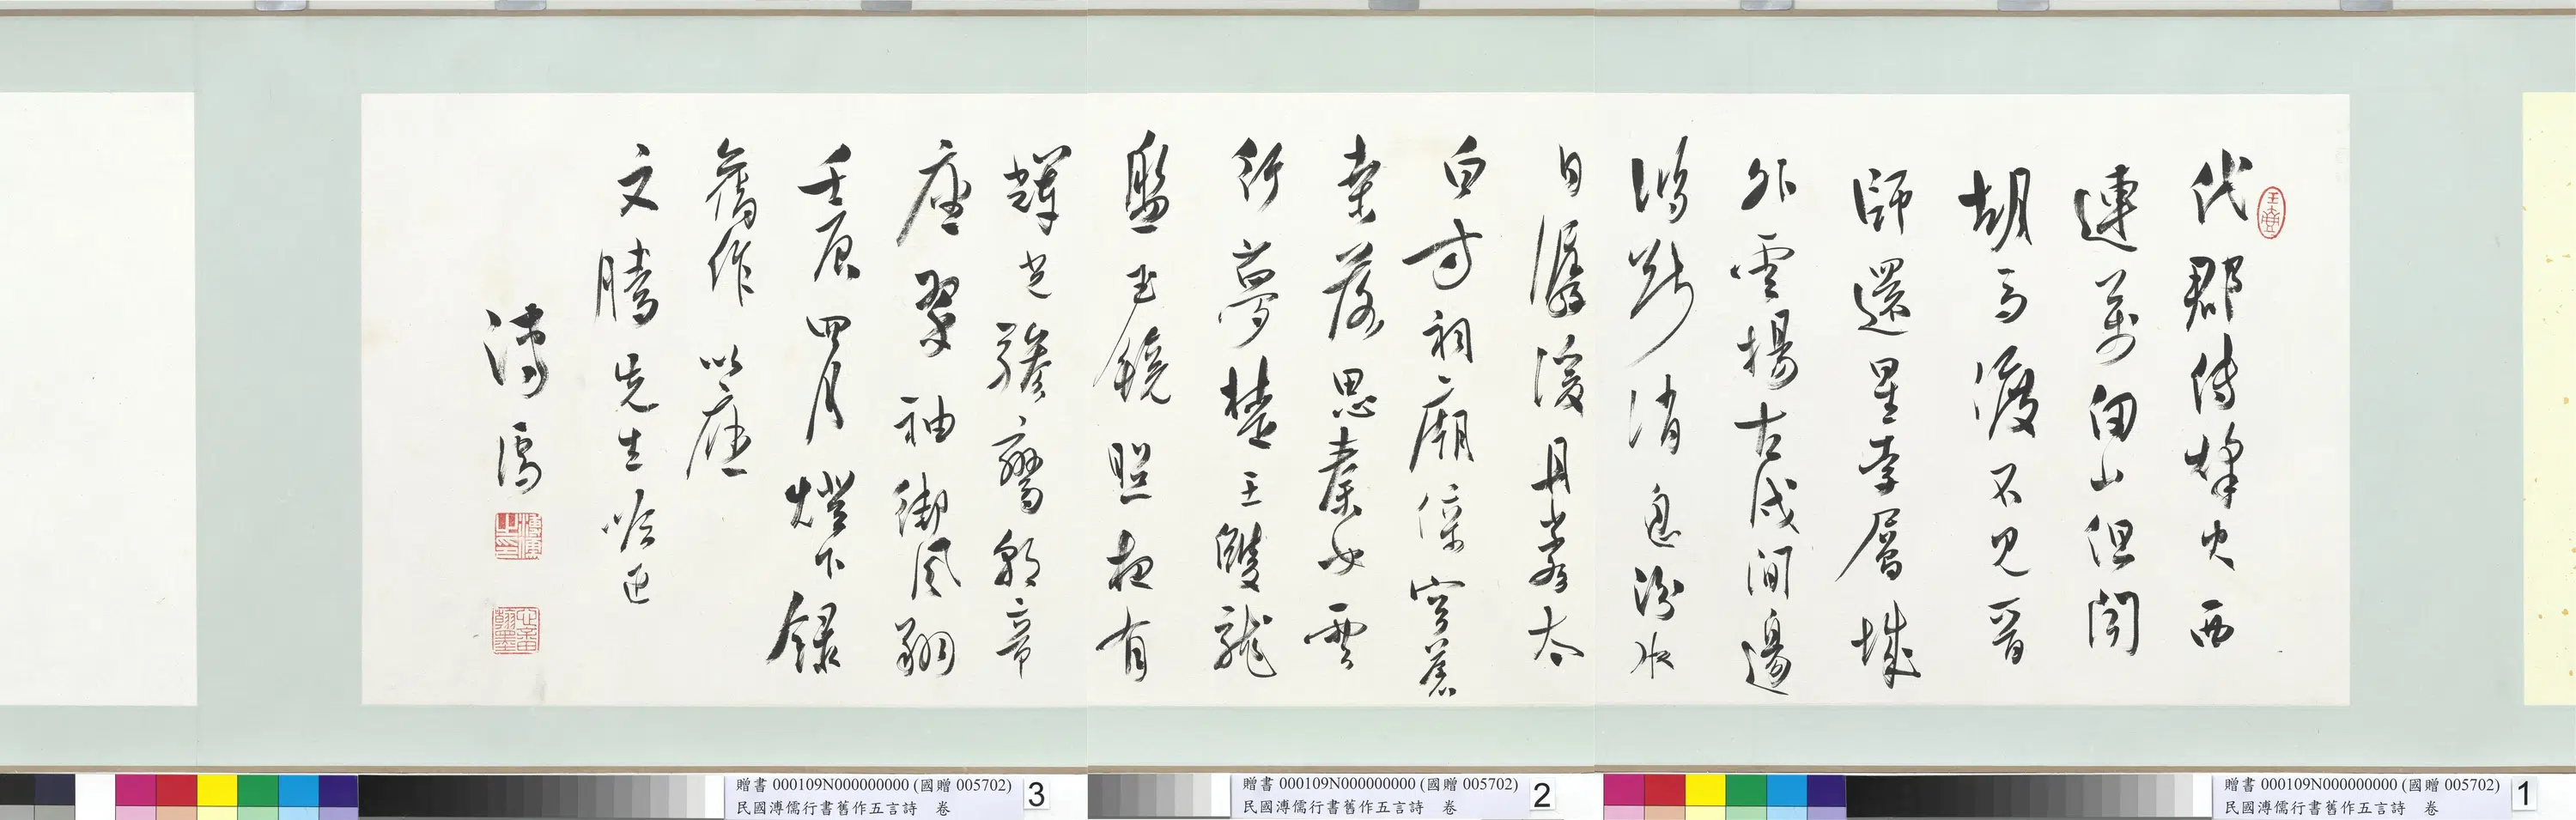 玉壺
代郡傳烽火西
連萬山但聞
胡馬渡不見晉
師還星孛層城
外雲揚古戍間邊
鴻斷消息汾水
日潺湲丹太
白方祠廟穹蒼
葉落思秦女雲
行夢楚王雙龍
盤玉鏡照夜有
輝光驂鸞朝帝
座翠袖御風翔
壬辰四月燈下錄
舊作以應
文騰先生吟正
溥儒
溥儒之印
心畬翰墨
贈書 000109N000000000 (國贈 005702)
民國溥儒行書舊作五言詩 卷
1
贈書 000109N000000000 (國贈 005702)
民國溥儒行書舊作五言詩 卷
2
贈書 000109N000000000 (國贈 005702)
民國溥儒行書舊作五言詩 卷
3